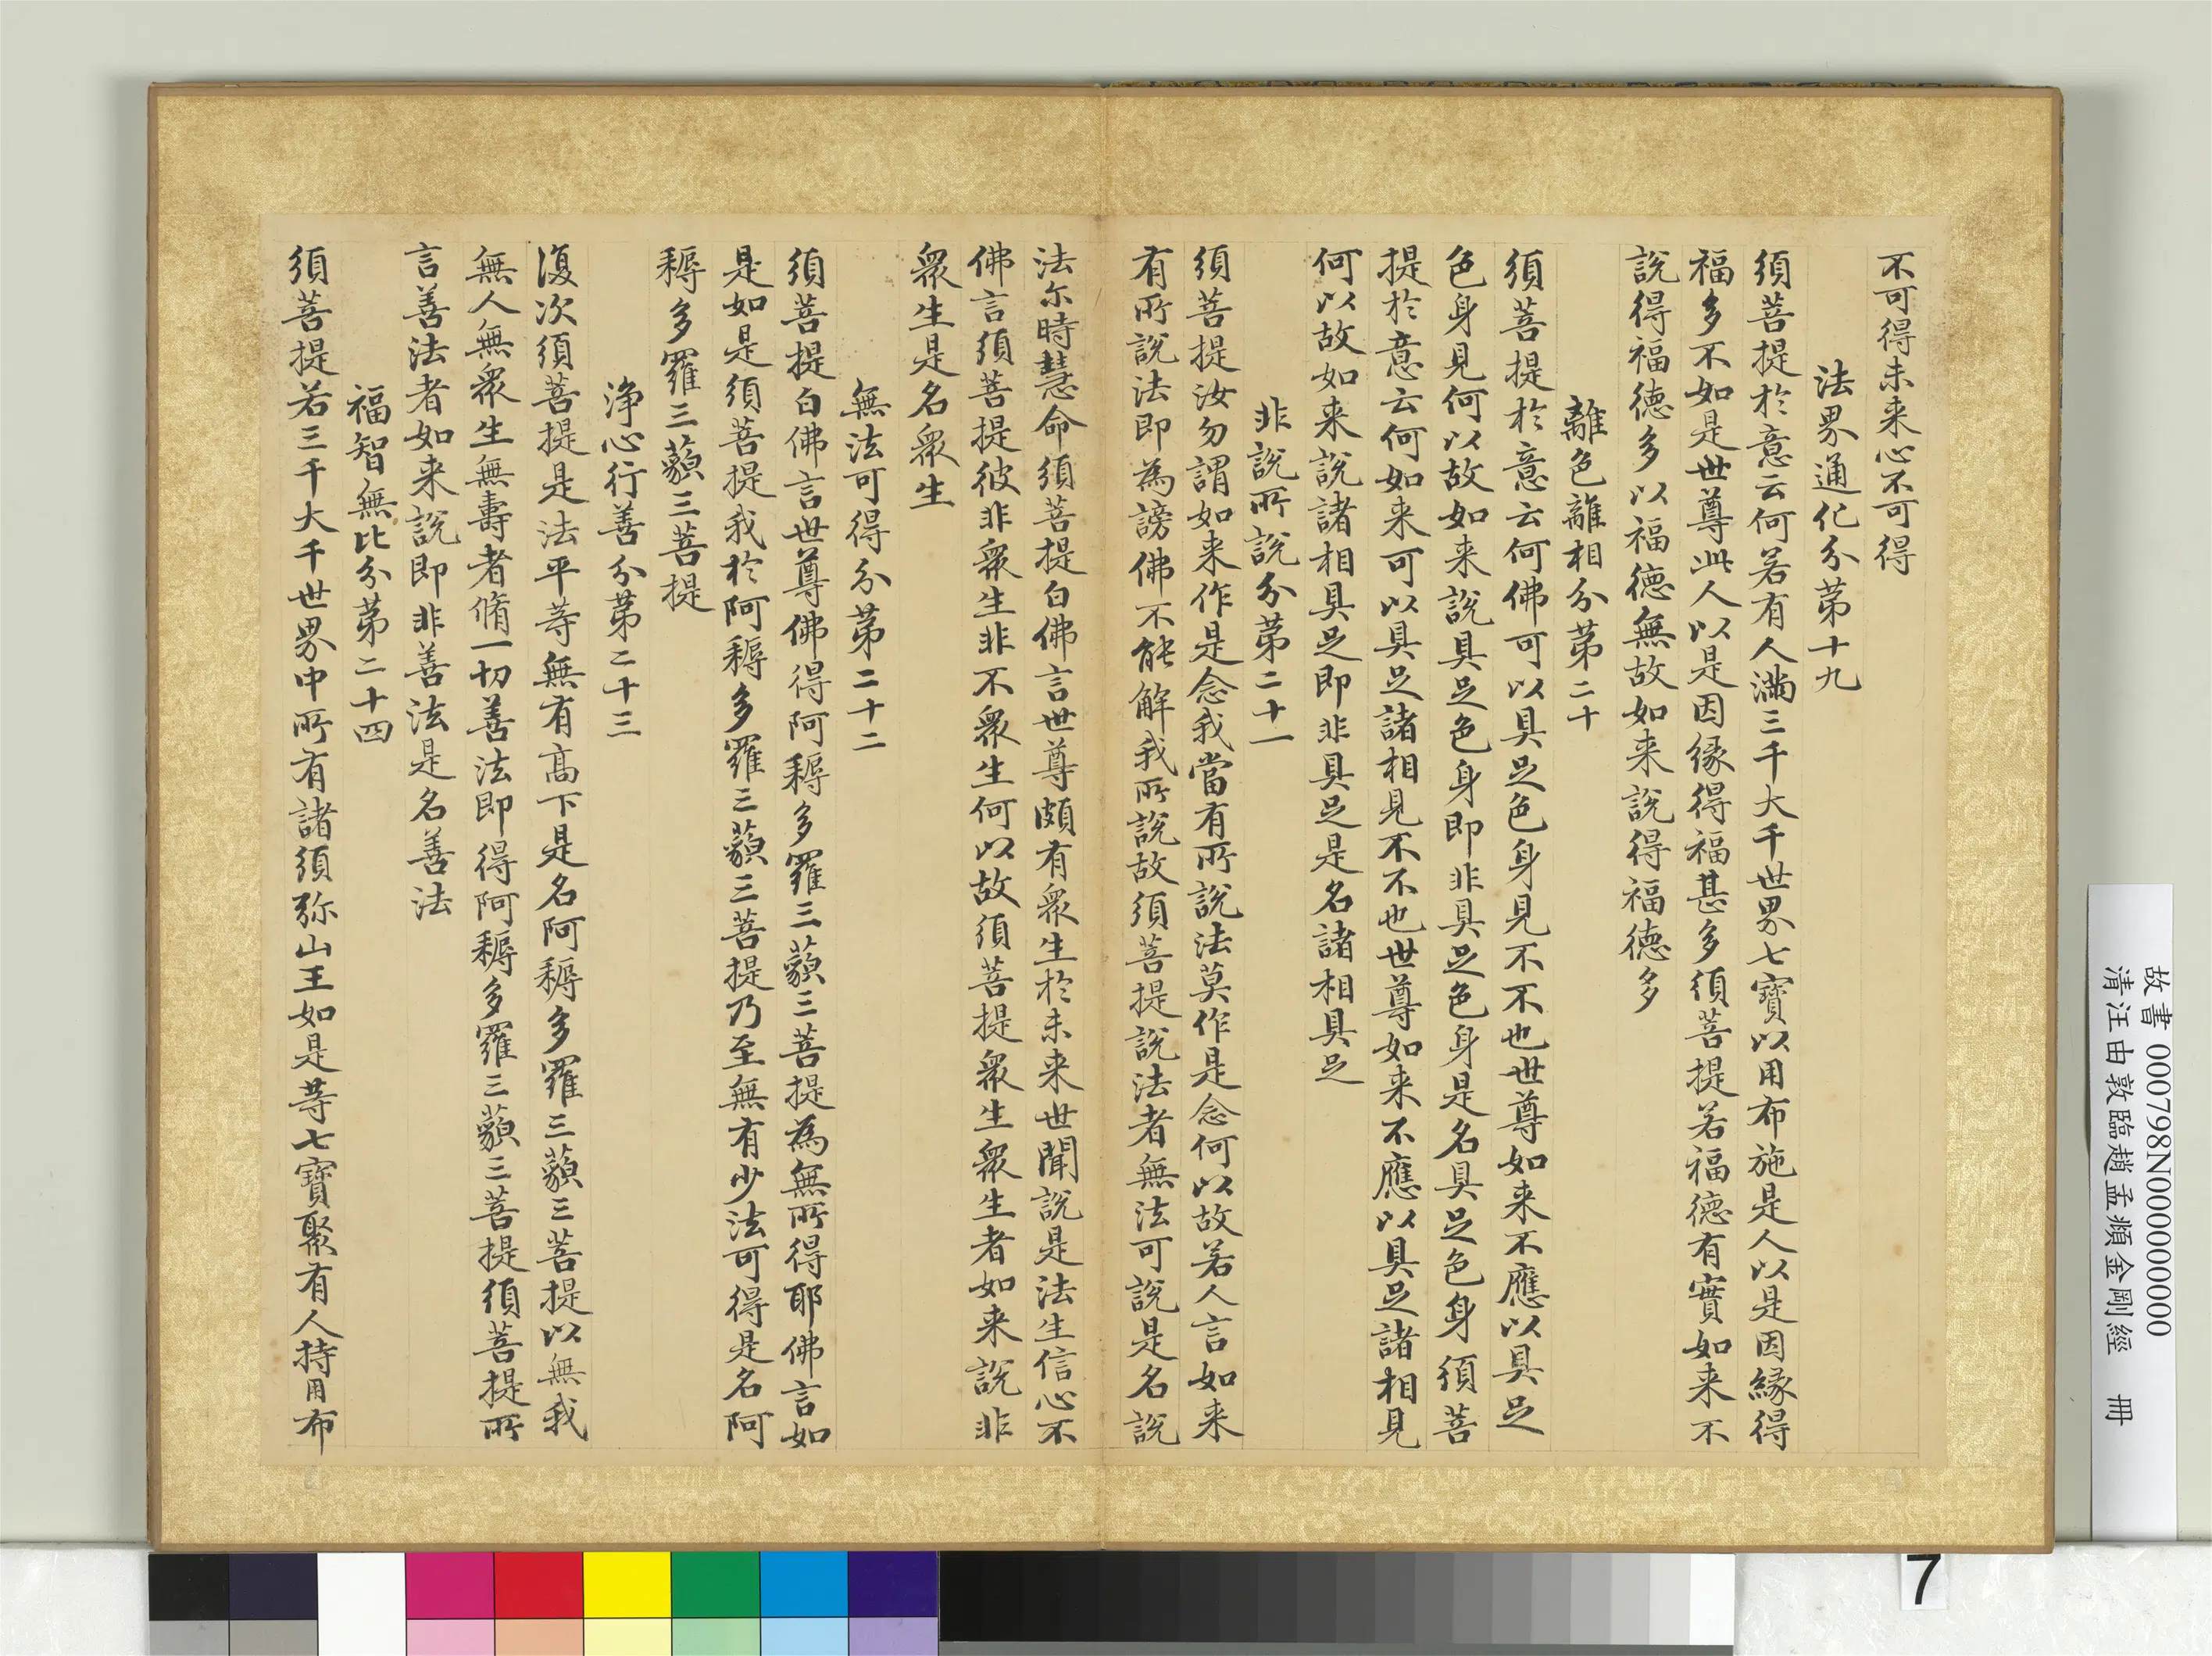 不可得未来心不可得
法界通化分第十九
須菩提於意云何若有人滿三千大千世界七寶以用布施是人以是因緣得
福多不如是世尊此人以是因緣得福甚多須菩提若福德有實如来不
說得福德多以福德無故如来說得福德多
離色離相分第二十
須菩提於意云何佛可以具足色身見不不也世尊如来不應以具足
色身見何以故如来說具足色身即非具足色身是名具足色身須菩
提於意云何如来可以具足諸相見不不也世尊如来不應以具足諸相見
何以故如来說諸相具足即非具足是名諸相具足
非說所說分第二十一
須菩提汝勿謂如来作是念我當有所說法莫作是念何以故若人言如来
有所說法即為謗佛不能解我所說故須菩提說法者無法可說是名說
法尔時慧命須菩提白佛言世尊頗有衆生於未来世聞說是法生信心不
佛言須菩提彼非衆生非不衆生何以故須菩提衆生衆生者如来說非
衆生是名衆生
無法可得分第二十二
須菩提白佛言世尊佛得阿耨多羅三藐三菩提為無所得耶佛言如
是如是須菩提我於阿耨多羅三藐三菩提乃至無有少法可得是名阿
耨多羅三藐三菩提
浄心行善分第二十三
復次須菩提是法平等無有高下是名阿耨多羅三藐三菩提以無我
無人無衆生無壽者脩一切善法即得阿耨多羅三藐三菩提須菩提所
言善法者如来說即非善法是名善法
福智無比分第二十四
須菩提若三千大千世界中所有諸須弥山王如是等七寶聚有人持用布
故書 000798N000000000
清汪由敦臨趙孟頫金剛經 冊
7